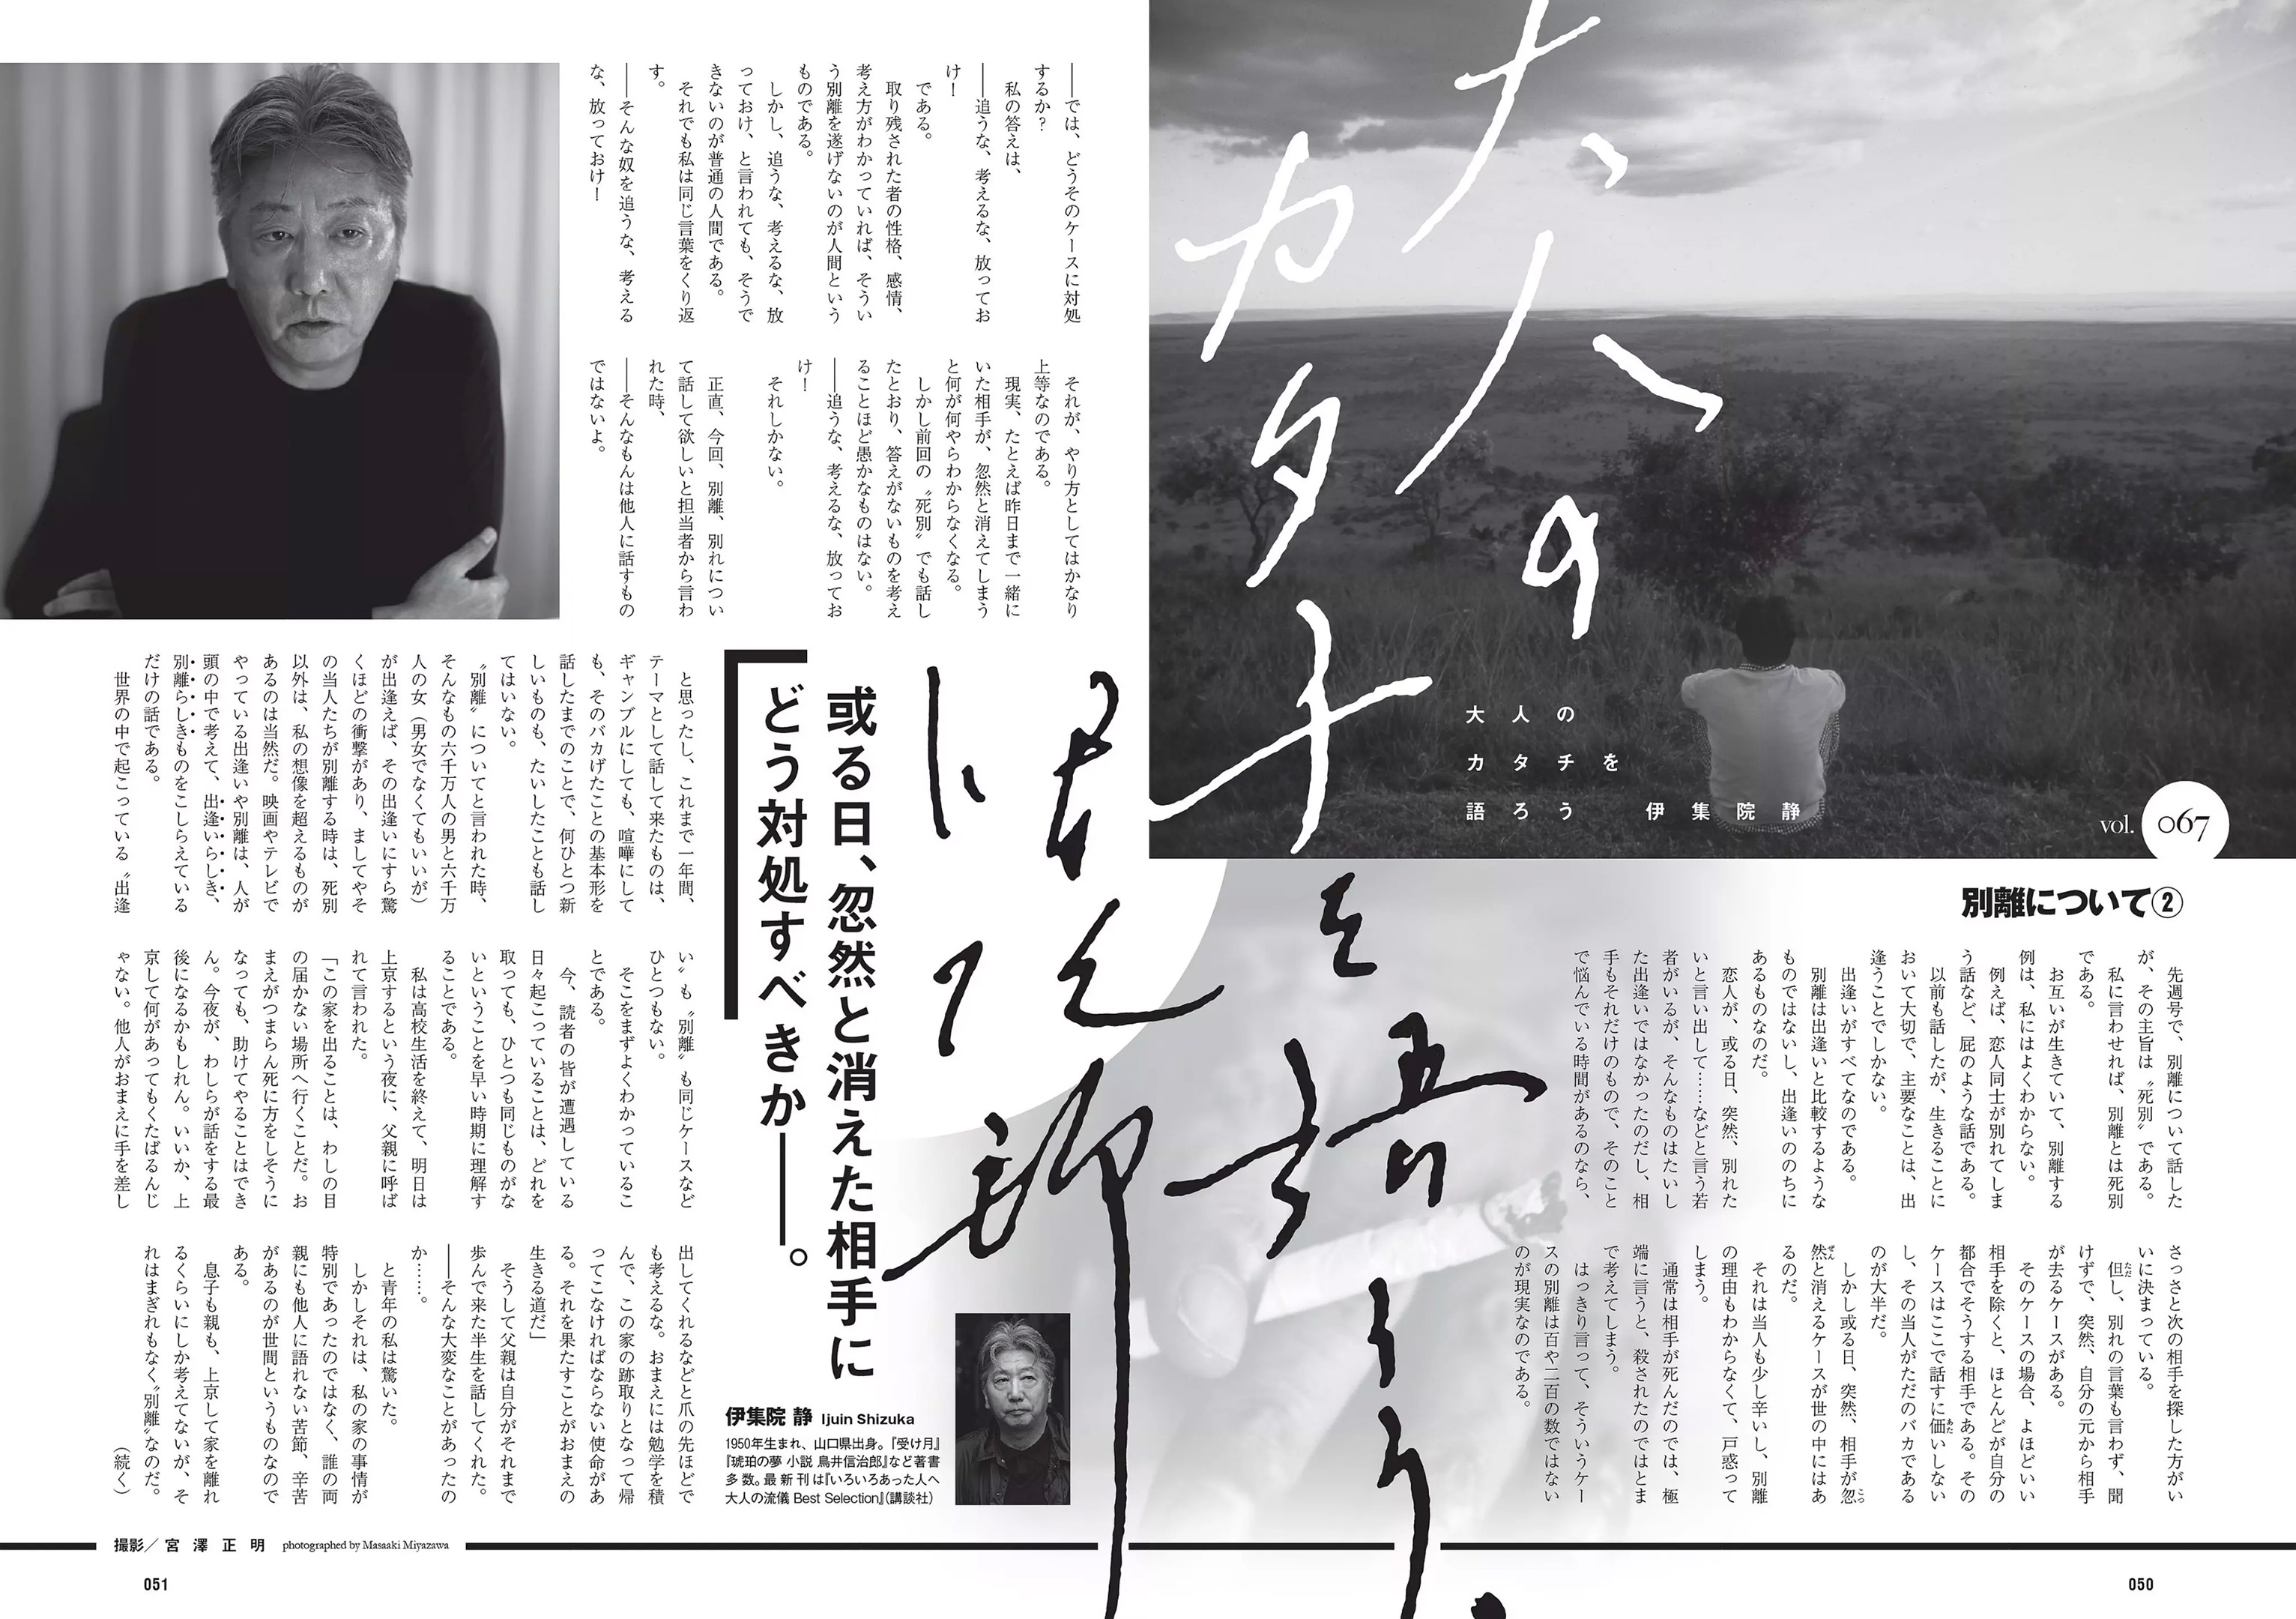 大人の
カタチ
を語ろう。
伊集院静
大人の
カタチを
語ろう 伊集院静
vol. 067
別離について②
先週号で、別離について話した
が、その主旨は〝死別〟である。
私に言わせれば、別離とは死別
である。
お互いが生きていて、別離する
例は、私にはよくわからない。
例えば、恋人同士が別れてしま
う話など、屁のような話である。
以前も話したが、生きることに
おいて大切で、主要なことは、出
逢うことでしかない。
出逢いがすべてなのである。
別離は出逢いと比較するような
ものではないし、出逢いののちに
あるものなのだ。
恋人が、或る日、突然、別れた
いと言い出して……などと言う若
者がいるが、そんなものはたいし
た出逢いではなかったのだし、相
手もそれだけのもので、そのこと
で悩んでいる時間があるのなら、
さっさと次の相手を探した方がい
いに決まっている。
但ただし、別れの言葉も言わず、聞
けずで、突然、自分の元から相手
が去るケースがある。
そのケースの場合、よほどいい
相手を除くと、ほとんどが自分の
都合でそうする相手である。その
ケースはここで話すに価あたいしない
し、その当人がただのバカである
のが大半だ。
しかし或る日、突然、相手が忽こつ
然ぜんと消えるケースが世の中にはあ
るのだ。
それは当人も少し辛いし、別離
の理由もわからなくて、戸惑って
しまう。
通常は相手が死んだのでは、極
端に言うと、殺されたのではとま
で考えてしまう。
はっきり言って、そういうケー
スの別離は百や二百の数ではない
のが現実なのである。
――では、どうそのケースに対処
するか？
私の答えは、
――追うな、考えるな、放ってお
け！
である。
取り残された者の性格、感情、
考え方がわかっていれば、そうい
う別離を遂げないのが人間という
ものである。
しかし、追うな、考えるな、放
っておけ、と言われても、そうで
きないのが普通の人間である。
それでも私は同じ言葉をくり返
す。
――そんな奴を追うな、考える
な、放っておけ！
それが、やり方としてはかなり
上等なのである。
現実、たとえば昨日まで一緒に
いた相手が、忽然と消えてしまう
と何が何やらわからなくなる。
しかし前回の〝死別〟でも話し
たとおり、答えがないものを考え
ることほど愚かなものはない。
――追うな、考えるな、放ってお
け！
それしかない。
正直、今回、別離、別れについ
て話して欲しいと担当者から言わ
れた時、
――そんなもんは他人に話すもの
ではないよ。
或る日、忽然と消えた相手に
どう対処すべきか――。
と思ったし、これまで一年間、
テーマとして話して来たものは、
ギャンブルにしても、喧嘩にして
も、そのバカげたことの基本形を
話したまでのことで、何ひとつ新
しいものも、たいしたことも話し
てはいない。
〝別離〟についてと言われた時、
そんなもの六千万人の男と六千万
人の女（男女でなくてもいいが）
が出逢えば、その出逢いにすら驚
くほどの衝撃があり、ましてやそ
の当人たちが別離する時は、死別
以外は、私の想像を超えるものが
あるのは当然だ。映画やテレビで
やっている出逢いや別離は、人が
頭の中で考えて、出逢いらしき、
別離らしきものをこしらえている
だけの話である。
世界の中で起こっている〝出逢
い〟も〝別離〟も同じケースなど
ひとつもない。
そこをまずよくわかっているこ
とである。
今、読者の皆が遭遇している
日々起こっていることは、どれを
取っても、ひとつも同じものがな
いということを早い時期に理解す
ることである。
私は高校生活を終えて、明日は
上京するという夜に、父親に呼ば
れて言われた。
「この家を出ることは、わしの目
の届かない場所へ行くことだ。お
まえがつまらん死に方をしそうに
なっても、助けてやることはでき
ん。今夜が、わしらが話をする最
後になるかもしれん。いいか、上
京して何があってもくたばるんじ
ゃない。他人がおまえに手を差し
出してくれるなどと爪の先ほどで
も考えるな。おまえには勉学を積
んで、この家の跡取りとなって帰
ってこなければならない使命があ
る。それを果たすことがおまえの
生きる道だ」
そうして父親は自分がそれまで
歩んで来た半生を話してくれた。
――そんな大変なことがあったの
か……。
と青年の私は驚いた。
しかしそれは、私の家の事情が
特別であったのではなく、誰の両
親にも他人に語れない苦節、辛苦
があるのが世間というものなので
ある。
息子も親も、上京して家を離れ
るくらいにしか考えてないが、そ
れはまぎれもなく〝別離〟なのだ。
（続く）
伊集院 静 Ijuin Shizuka
1950年生まれ、山口県出身。『受け月』
『琥珀の夢 小説 鳥井信治郎』など著書
多数。最新刊は『いろいろあった人へ
大人の流儀 Best Selection』（講談社）
撮影／宮澤正明 photographed by Masaaki Miyazawa
051
050